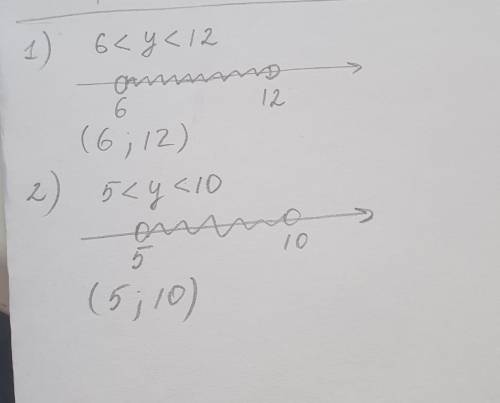 1) 6 < y < 12
6 12
(6 ; 12)
2) 5 < y < 10
5 10
(5 ; 10)